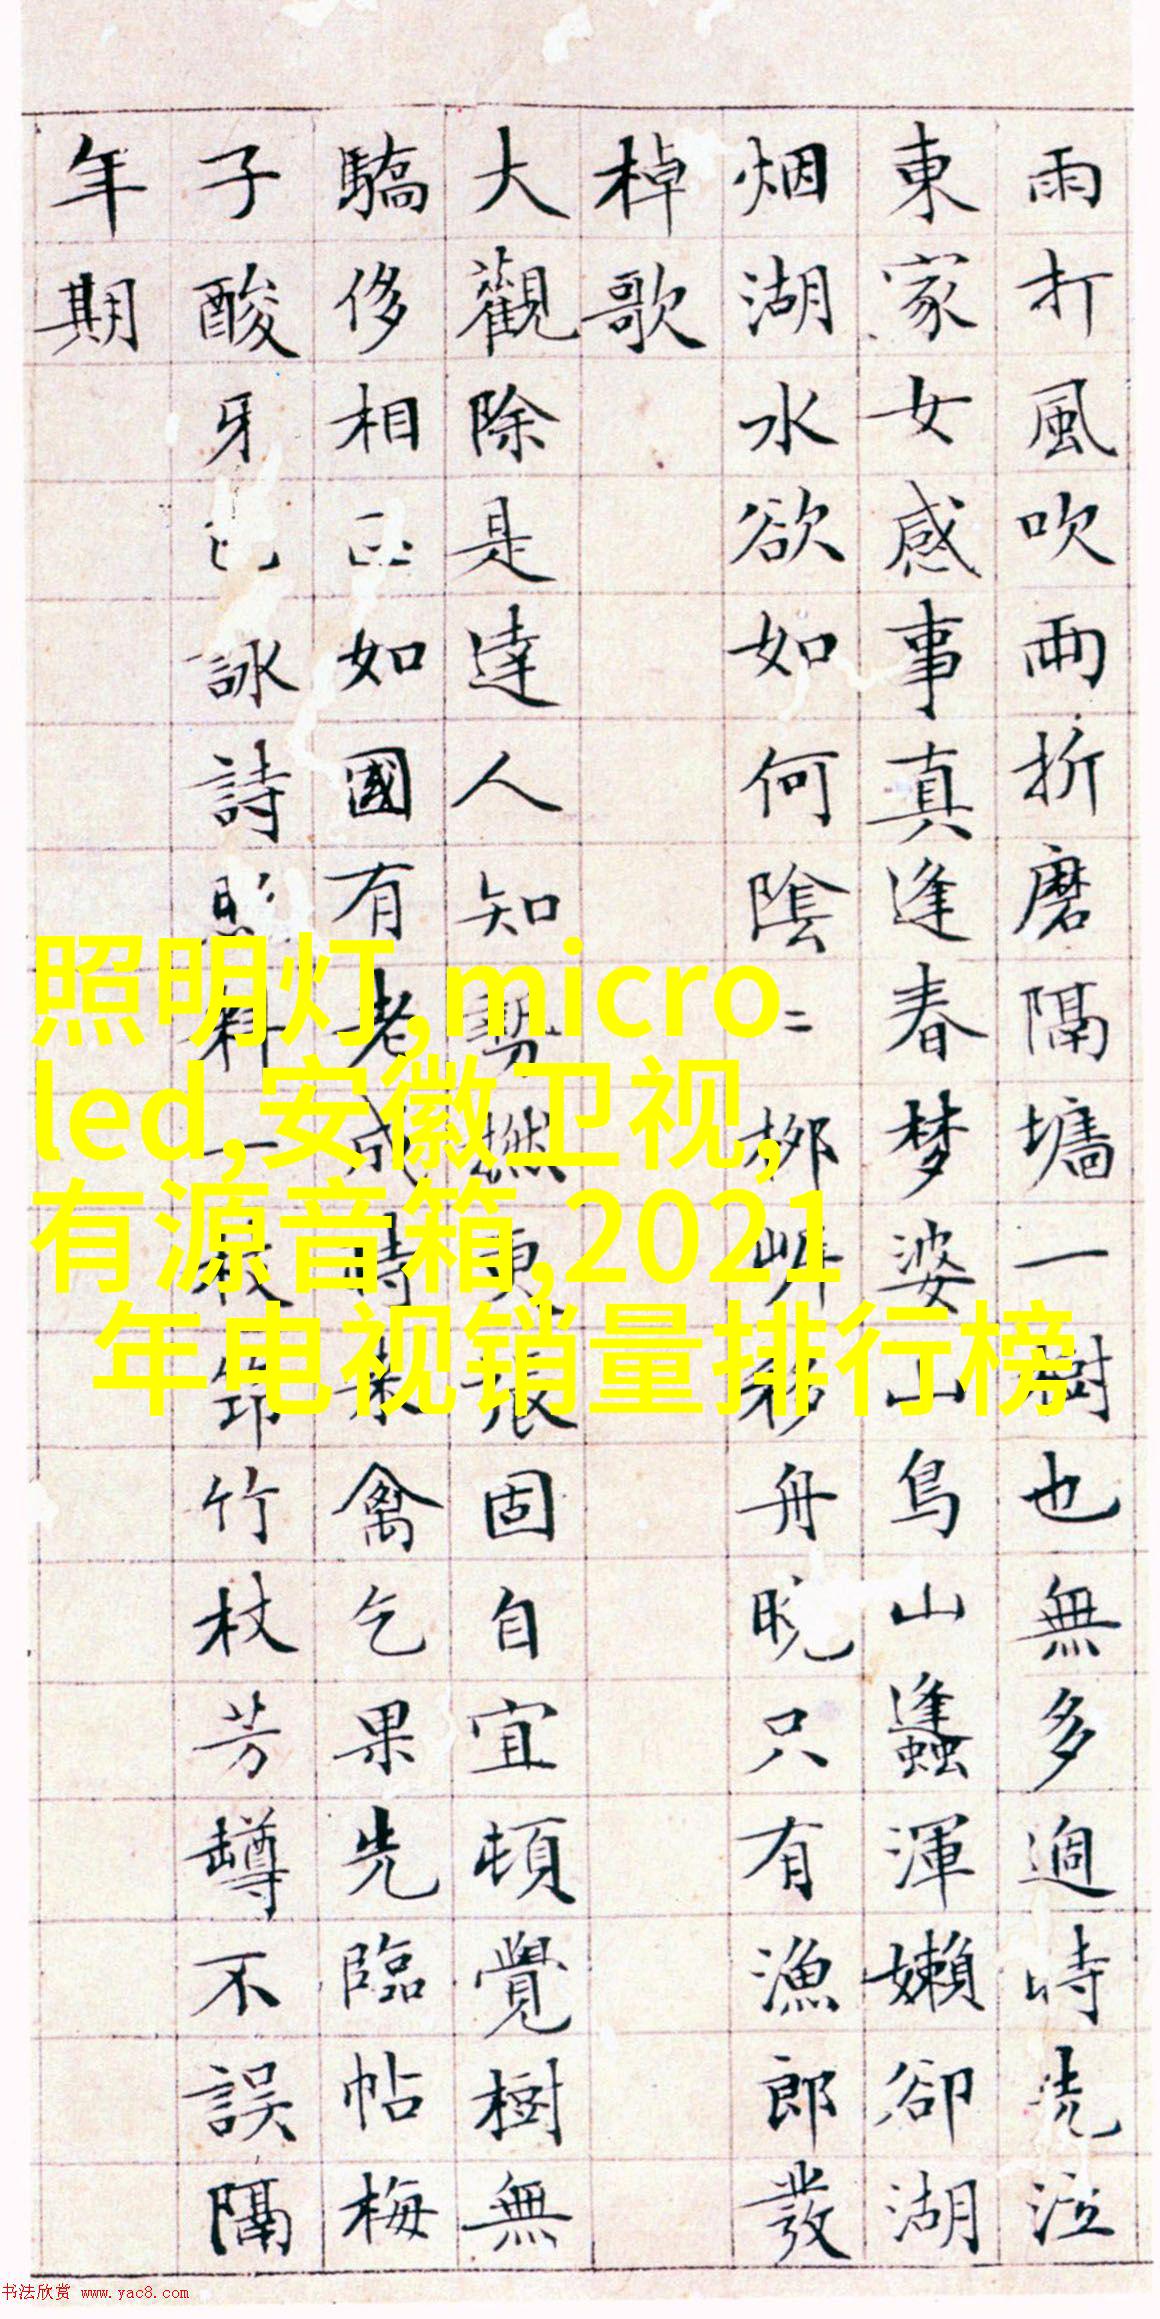 雨打風吹兩折磨隔墻一樹也無多時泣
東家女感事真逢春梦婆山鳥山蠭渾嬾卻湖
烟湖水欲如何陰二柳岍移舟晚只有漁郎發
棹歌
大觀除是達人知勢撚更張固自宜頓覺樹無
驕侈相如國有老成時來禽乞果先臨帖梅
子酸牙詠詩照料一枝筇竹杖芳罇不誤隔
年期
照明灯,micro
led,安徽卫视,
有源音箱,2021
年电视销量排行榜
书法欣赏 www.yac8.com